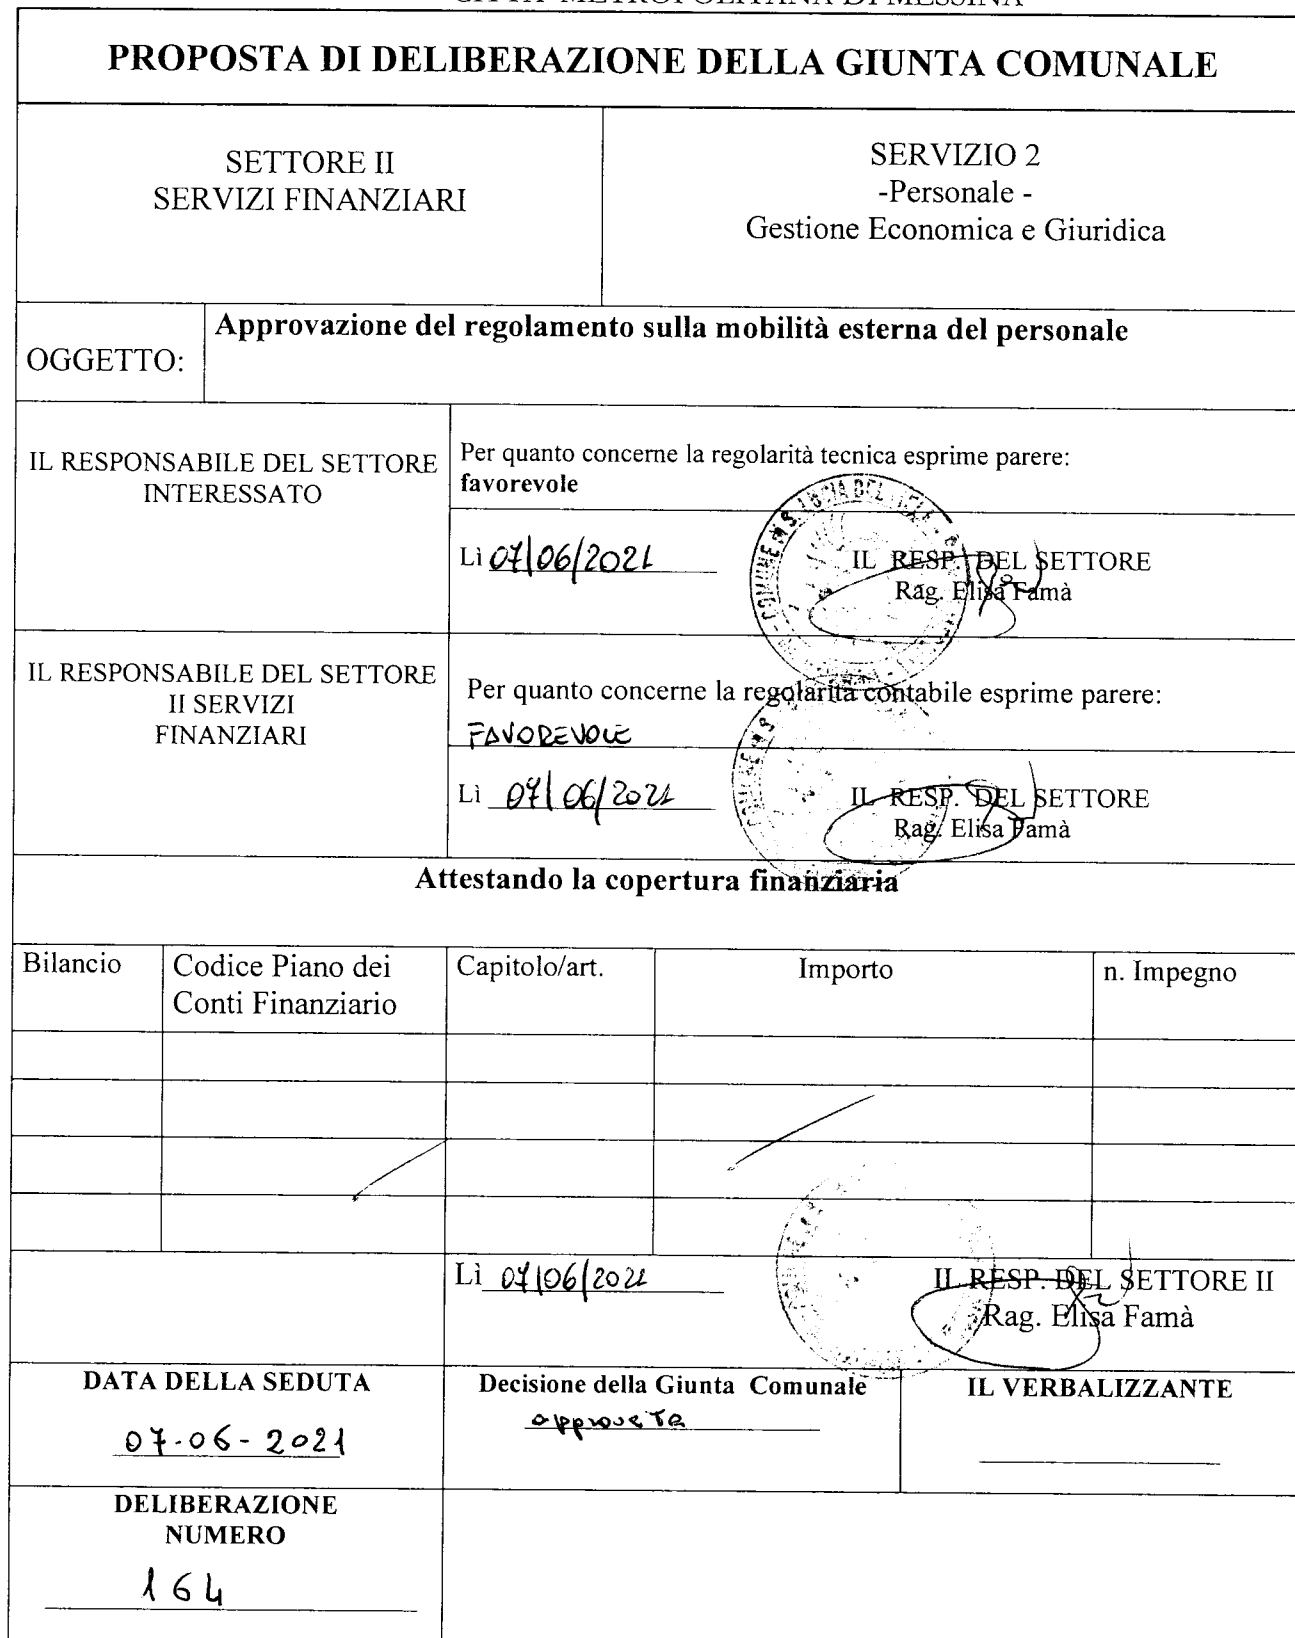 CITTA' METROPOLITANA DI MESSINA
PROPOSTA DI DELIBERAZIONE DELLA GIUNTA COMUNALE
SETTORE II
SERVIZI FINANZIARI
SERVIZIO 2
-Personale -
Gestione Economica e Giuridica
OGGETTO:
Approvazione del regolamento sulla mobilità esterna del personale
IL RESPONSABILE DEL SETTORE
INTERESSATO
Per quanto concerne la regolarità tecnica esprime parere:
favorevole
Lì 07/06/2021
IL RESP. DEL SETTORE
Rag. Elisa Famà
IL RESPONSABILE DEL SETTORE
II SERVIZI
FINANZIARI
Per quanto concerne la regolarità contabile esprime parere:
FAVOREVOLE
Lì 07/06/2021
IL RESP. DEL SETTORE
Rag. Elisa Famà
Attestando la copertura finanziaria
Bilancio
Codice Piano dei
Conti Finanziario
Capitolo/art.
Importo
n. Impegno
Lì 07/06/2021
IL RESP. DEL SETTORE II
Rag. Elisa Famà
DATA DELLA SEDUTA
07-06-2021
Decisione della Giunta Comunale
approvata
IL VERBALIZZANTE
DELIBERAZIONE
NUMERO
164